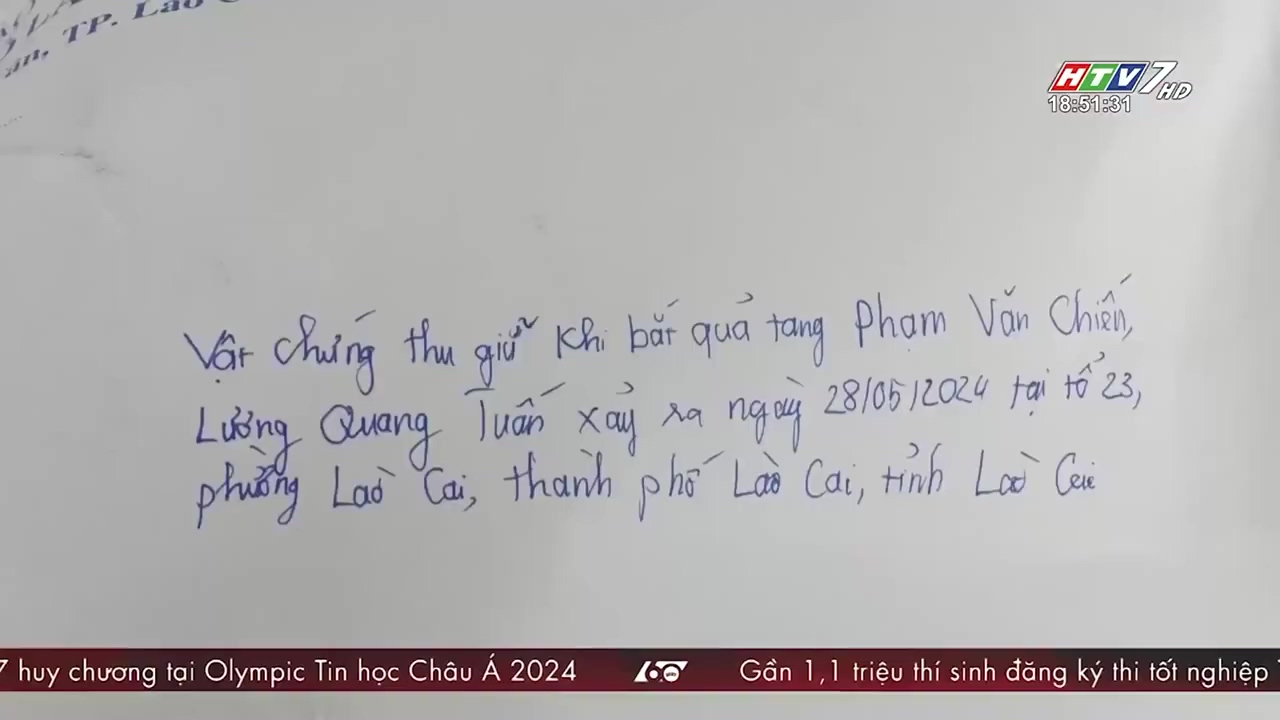 TP. Lào
HTV7 HD
18:51:31
Vật chứng thu giữ khi bắt quả tang Phạm Văn Chiến,
Lương Quang Tuấn xảy ra ngày 28/05/2024 tại tổ 23,
phường Lào Cai, thành phố Lào Cai, tỉnh Lào Cai
7 huy chương tại Olympic Tin học Châu Á 2024
60 giây
Gần 1,1 triệu thí sinh đăng ký thi tốt nghiệp